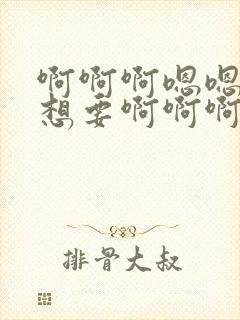 啊啊啊嗯嗯
想要啊啊啊
排骨大叔